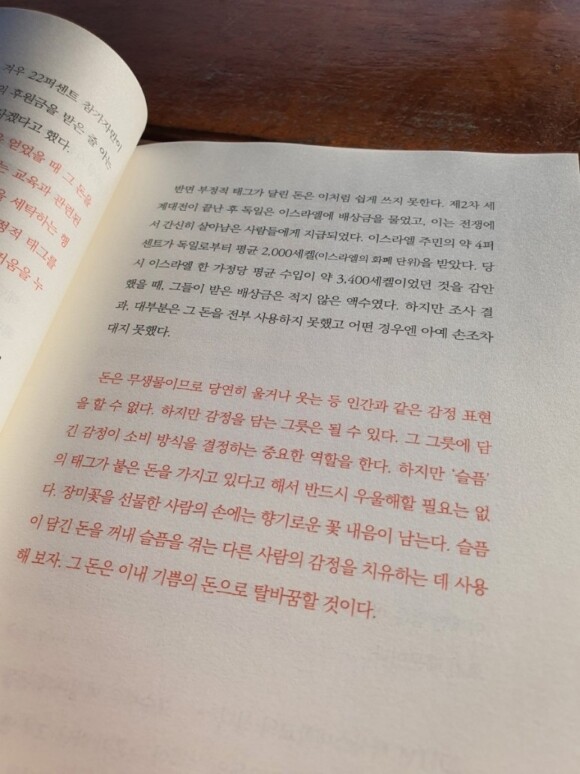 겨우 22퍼센트 참가자만이
의 후원금을 받은 줄 아는
하겠다고 했다.
얻었을 때 그 돈을
는 교육과 관련된
을 세탁하는 행
정적 태그를
거움을 누
반면 부정적 태그가 달린 돈은 이처럼 쉽게 쓰지 못한다. 제2차 세
계대전이 끝난 후 독일은 이스라엘에 배상금을 물었고, 이는 전쟁에
서 간신히 살아남은 사람들에게 지급되었다. 이스라엘 주민의 약 4퍼
센트가 독일로부터 평균 2,000세켈(이스라엘의 화폐 단위)을 받았다. 당
시 이스라엘 한 가정당 평균 수입이 약 3,400세켈이었던 것을 감안
했을 때, 그들이 받은 배상금은 적지 않은 액수였다. 하지만 조사 결
과, 대부분은 그 돈을 전부 사용하지 못했고 어떤 경우엔 아예 손조차
대지 못했다.
돈은 무생물이므로 당연히 울거나 웃는 등 인간과 같은 감정 표현
을 할 수 없다. 하지만 감정을 담는 그릇은 될 수 있다. 그 그릇에 담
긴 감정이 소비 방식을 결정하는 중요한 역할을 한다. 하지만 ‘슬픔’
의 태그가 붙은 돈을 가지고 있다고 해서 반드시 우울해할 필요는 없
다. 장미꽃을 선물한 사람의 손에는 향기로운 꽃 내음이 남는다. 슬픔
이 담긴 돈을 꺼내 슬픔을 겪는 다른 사람의 감정을 치유하는 데 사용
해 보자. 그 돈은 이내 기쁨의 돈으로 탈바꿈할 것이다.